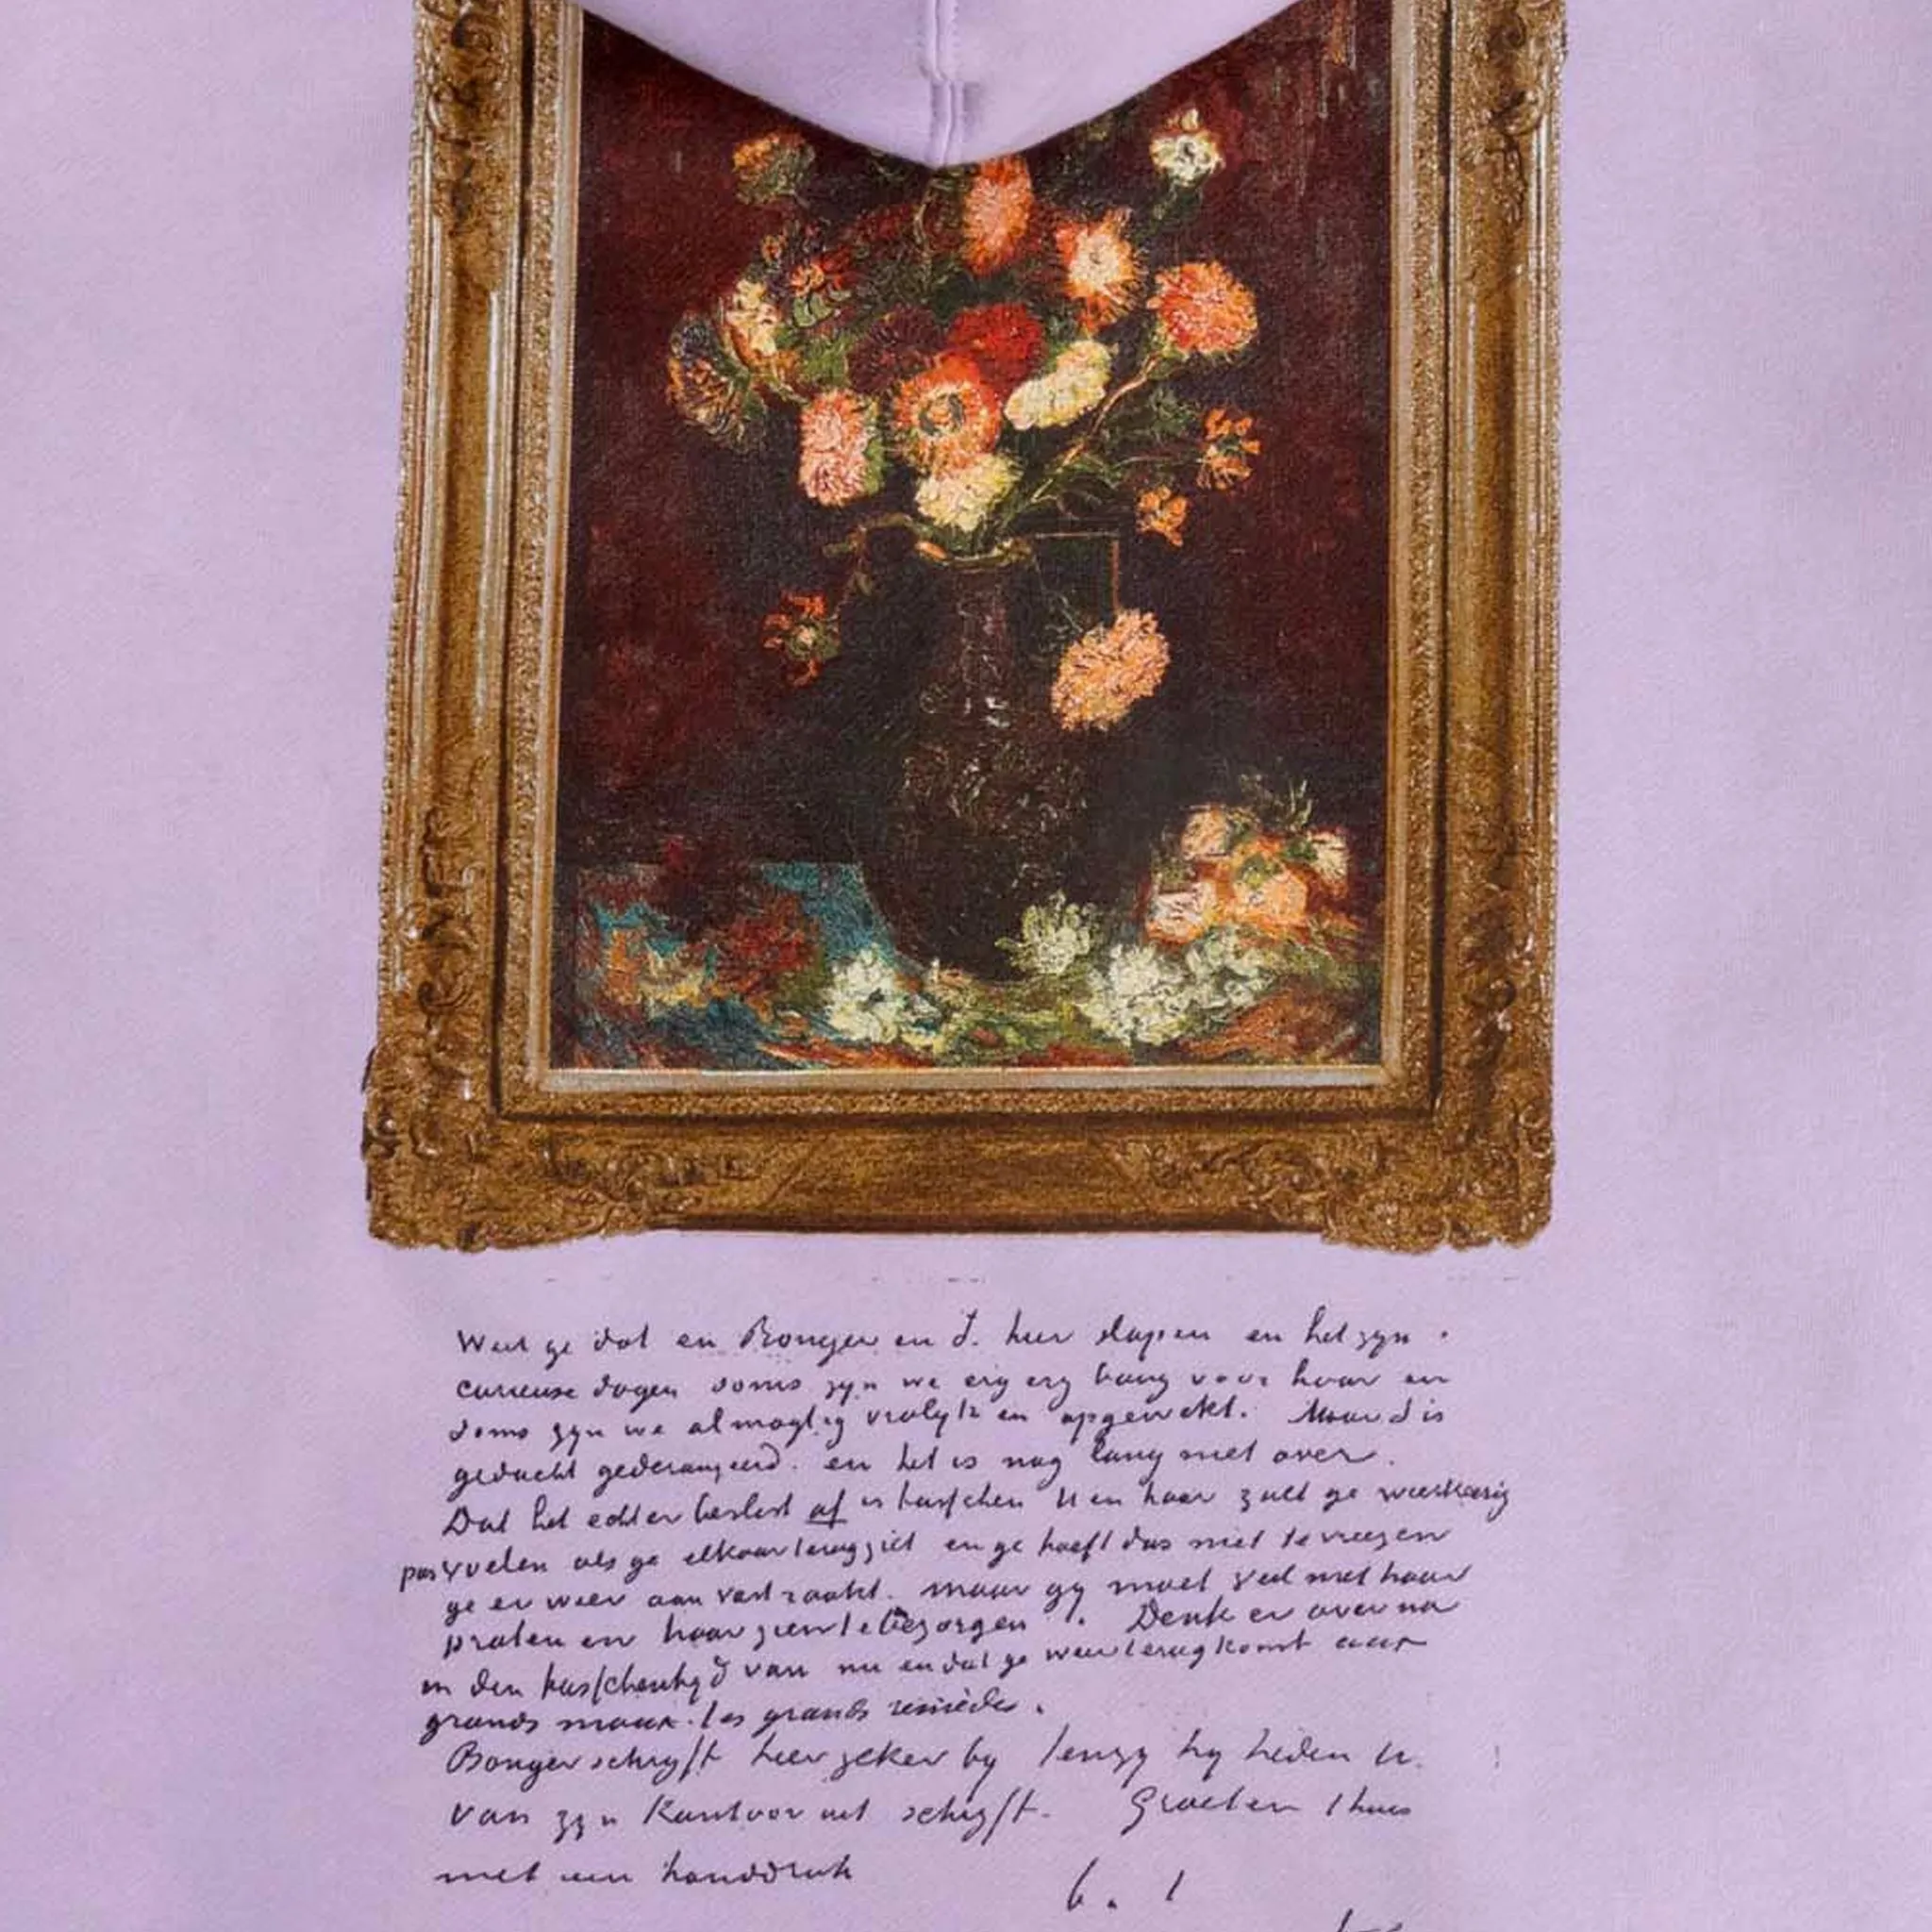 Weet ge dat en Bonger en I. hier slapen en het zyn
curieuse dagen soms zyn we erg erg bang voor haar en
soms zyn we almagtig vrolyk en opgewekt. Maar S is
gedacht gederangeerd. en het is nog lang niet over.
Dat het echter beslist af is tusschen U en haar zult ge weerkeerig
voelen als ge elkaar terugziet en ge hoeft dus niet te vreezen
ge er weer aan vast raakt. maar gy moet veel met haar
praten en haar zien te bezorgen. Denk er over na
in den tusschentyd van nu en dat ge weer terugkomt aux
grands maux. les grands remèdes.
Bonger schryft hier zeker by tenzy hy heden U.
van zyn Kantoor uit schryft. Groeten thuis
met een handdruk